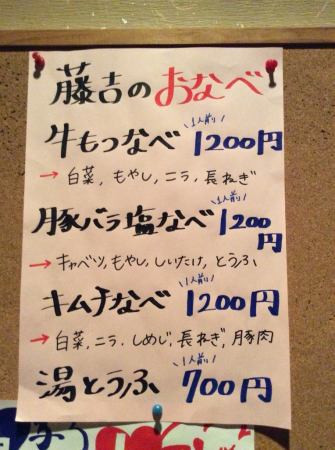 藤吉のおなべ
1人前
牛もつなべ 1200円
→ 白菜, もやし, ニラ, 長ねぎ
1人前
豚バラ塩なべ 1200円
→ キャベツ, もやし, しいたけ, とうふ
1人前
キムチなべ 1200円
→ 白菜, ニラ, しめじ, 長ねぎ, 豚肉
1人前
湯とうふ 700円